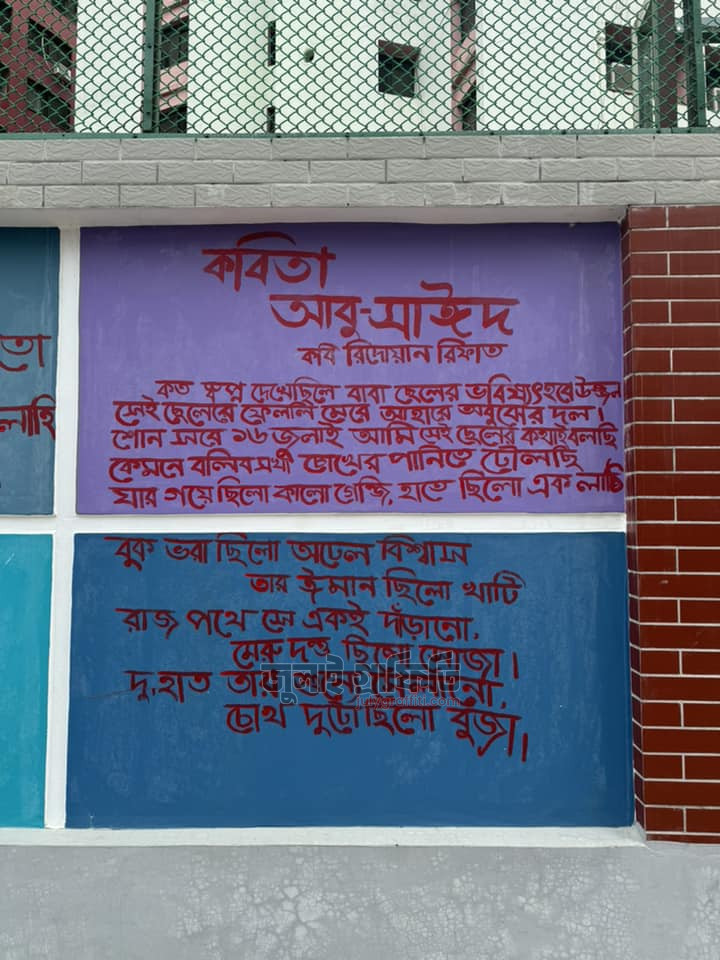 কবিতা
আবু-সাঈদ
কবি রিদোয়ান রিফাত
কত স্বপ্ন দেখেছিলে বাবা ছেলের ভবিষ্যৎ হবে উজ্জল
সেই ছেলেরে ফেলালি মেরে আহারে অবুঝের দল।
শোন সবে ১৬ জুলাই আমি সেই ছেলের কথাই বলছি
কেমনে বলিব সখা চোখের পানিতে ঢৌলছি
যার গায়ে ছিলো কালো গেঞ্জি, হাতে ছিলো এক লাঠি
বুক ভরা ছিলো অটেল বিশ্বাস
তার ঈমান ছিলো খাটি
রাজ পথে সে একই দাঁড়ানো,
মেরু দন্ড ছিলো সোজা।
দু,হাত তার
চোখ দুটো ছিলো বুজা।
তো
লাঠি
জুলাই গ্রাফিতি
julygraffiti.com